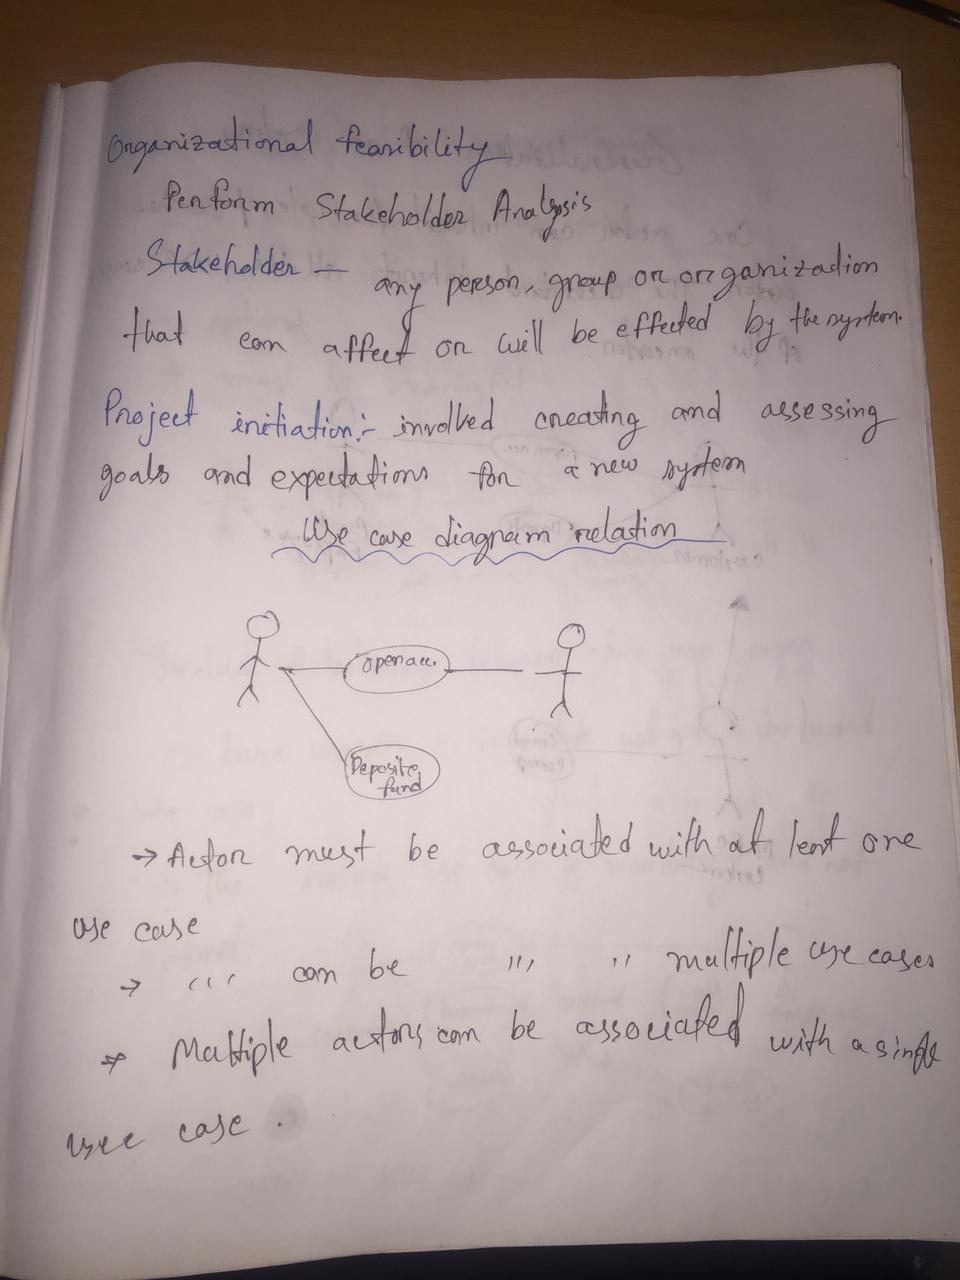 Organizational feasibility
Perform Stakeholder Analysis
Stakeholder — any person, group or organization
that can affect or will be effected by the system.
Project initiation:- involved creating and assessing
goals and expectations for a new system
Use case diagram relation
open acc.
Deposite
fund
→ Actor must be associated with at least one
use case
→ ''' can be ''' '' multiple use cases
→ Multiple actors can be associated with a single
use case.